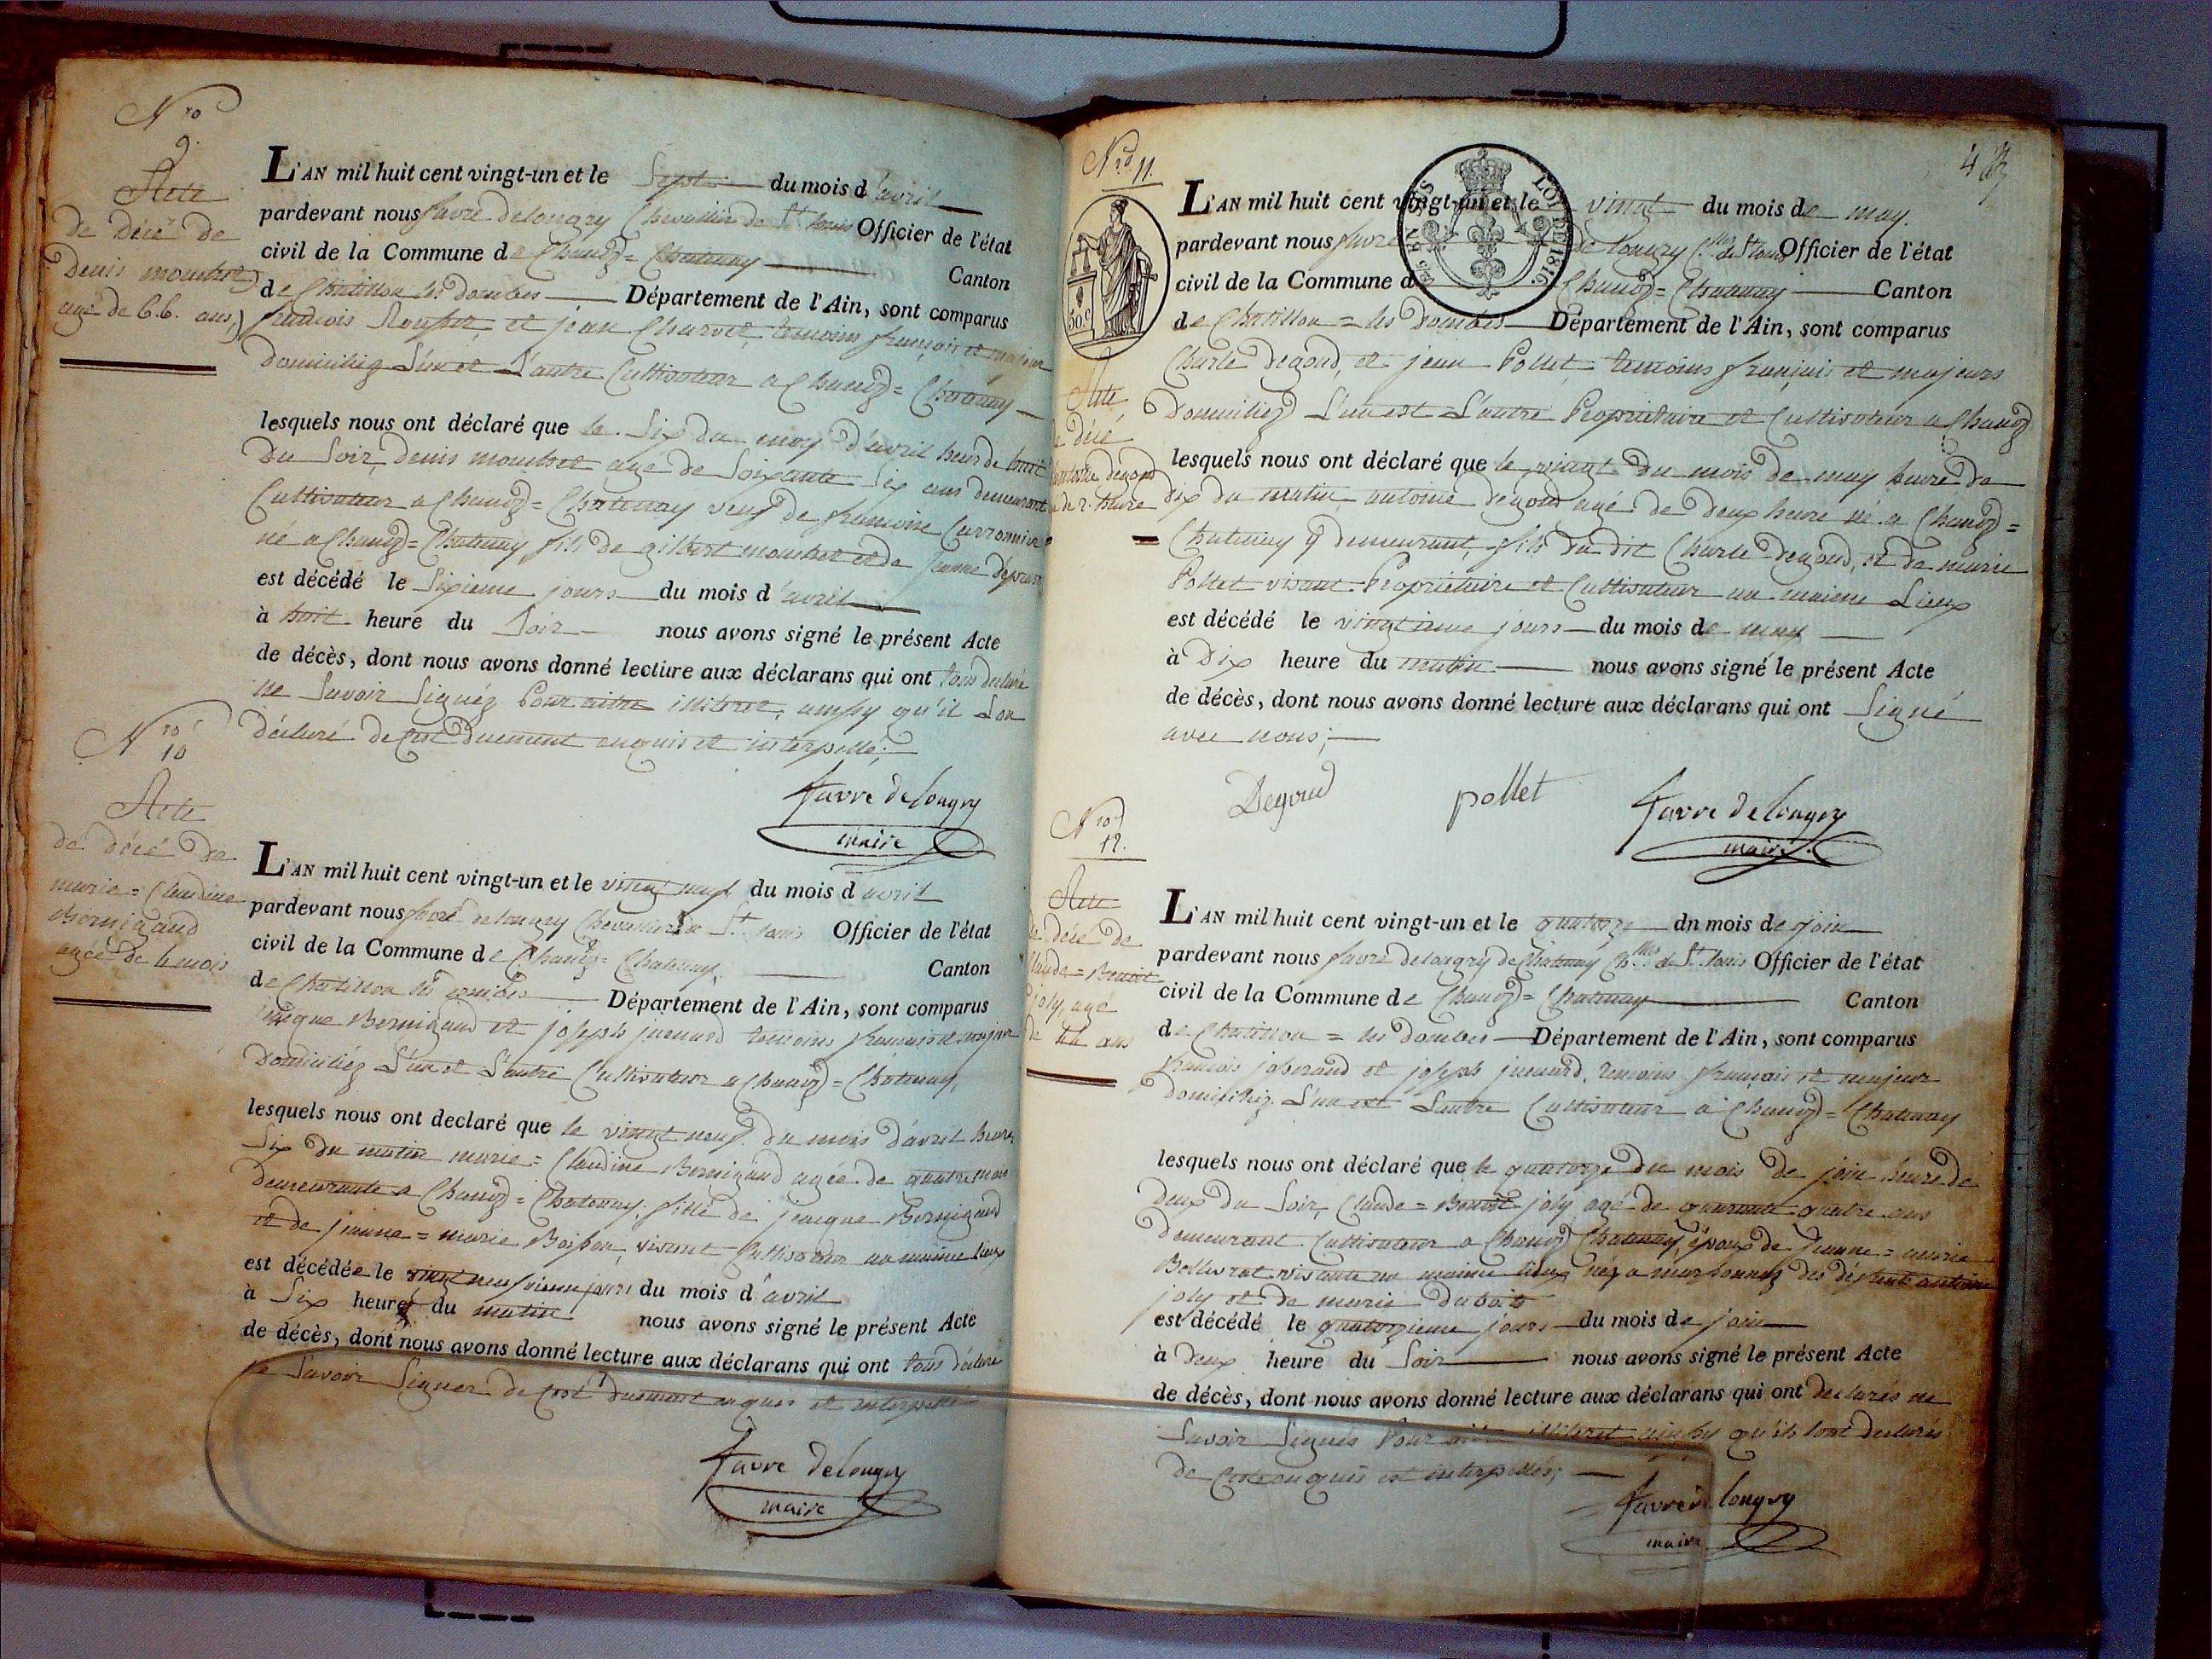 Nro
9.
Acte
de décé de
denis monchet
agé de 66. ans,
L'AN mil huit cent vingt-un et le sept du mois d'avril
pardevant nous favre delongry Chevallier de St louis Officier de l'état
civil de la Commune de Chanoz = Chatenay Canton
de Chatillon les dombes Département de l'Ain, sont comparus
francois et jean Charvet temoins français et majeur
domiciliez L'un et L'autre Cultivateur a Chanoz = Chatenay
lesquels nous ont déclaré que le six du moy d'avril heur de huit
du soir, denis monchet agé de soixante six ans demeurant
Cultivateur a Chanoz = Chatenay veuf de francoise
né a Chanoz = Chatenay fils de gilbert monchet et de jeanne
est décédé le sixieme jours du mois d'avril
à huit heure du soir nous avons signé le présent Acte
de décès, dont nous avons donné lecture aux déclarans qui ont tous declaré
ne savoir signéz Pour aitre illiteret, ainsy qu'il L'on
déclaré de ce duement enquis et interpellé;
favre delongry
maire
Nro
10
Acte
de décé de
marie = Claudine
Bernigaud
agée de 4 mois
L'AN mil huit cent vingt-un et le vingt neuf du mois d avril
pardevant nous favre delongry Chevallier de St louis Officier de l'état
civil de la Commune de Chanoz = Chatenay Canton
de Chatillon les dombes Département de l'Ain, sont comparus
jaeque Bernigaud et joseph juenard temoins francais et majeur
domiciliéz L'un et L'autre Cultivateur a Chanoz = Chatenay,
lesquels nous ont declaré que le vingt neuf du mois d'avril heures
six du matin marie = Claudine Bernigaud agée de quatre mois
demeurante a Chanoz = Chatenay, fille de jaeque Bernigaud
et de jeanne = marie vivant Cultivateur au maime lieux
est décédée le vingt neufvieme jours du mois d'avril
à six heures du matin nous avons signé le présent Acte
de décès, dont nous avons donné lecture aux déclarans qui ont tous déclaré
ne savoir signer de ce duement enquis et interpellé
favre delongry
maire
47
Nro 11.
TIMBRE ROYAL
LOI DE 1816.
50.c
Acte
de décé
antoine degoud
agé de 2. heure
L'AN mil huit cent vingt-un et le vingt du mois de may
pardevant nous favre de longry Cher de St louis Officier de l'état
civil de la Commune de Chanoz = Chatenay Canton
de Chatillon = les dombes Département de l'Ain, sont comparus
Charle degoud, et jean Pollet temoins français et majeurs
domiciliez L'un et L'autre Propriétaire et Cultivateur a Chanoz
lesquels nous ont déclaré que le vingt du mois de may heure de
dix du matin, antoine degoud agé de deux heure né a Chanoz =
Chatenay y demeurant, fils du dit Charle degoud, et de marie
Pollet vivant Propriétaire et Cultivateur au maieme Lieux
est décédé le vingtieme jours du mois de may
à dix heure du matin nous avons signé le présent Acte
de décès, dont nous avons donné lecture aux déclarans qui ont signé
avec nous;
Degoud pollet favre delongry
maire
Nro
12.
Acte
de décé de
Claude = Benoit
joly, agé
de 44 ans
L'AN mil huit cent vingt-un et le quatorze dn mois de join
pardevant nous favre delongry de Chatenay Cher de St louis Officier de l'état
civil de la Commune de Chanoz = Chatenay Canton
de Chatillon = les dombes Département de l'Ain, sont comparus
francois joberand et joseph juenard, temoins français et majeur
domiciliez L'un et L'autre Cultivateur a Chanoz = Chatenay
lesquels nous ont déclaré que le quatorze du mois de join heure de
deux du soir, Claude = Benoit joly agé de quarante quatre ans
demeurant Cultivateur a Chanoz Chatenay, époux de jeanne = marie
vivante au maime lieux, néz a marsonnaz des antoine
joly et de marie dubois
est décédé le quatorzieme jours du mois de join
à deux heure du soir nous avons signé le présent Acte
de décès, dont nous avons donné lecture aux déclarans qui ont declarés ne
savoir signés Pour aitre illiteret ainsy qu'ils l'ont declarés
de ce enquis et interpellés;
favre delongry
maire